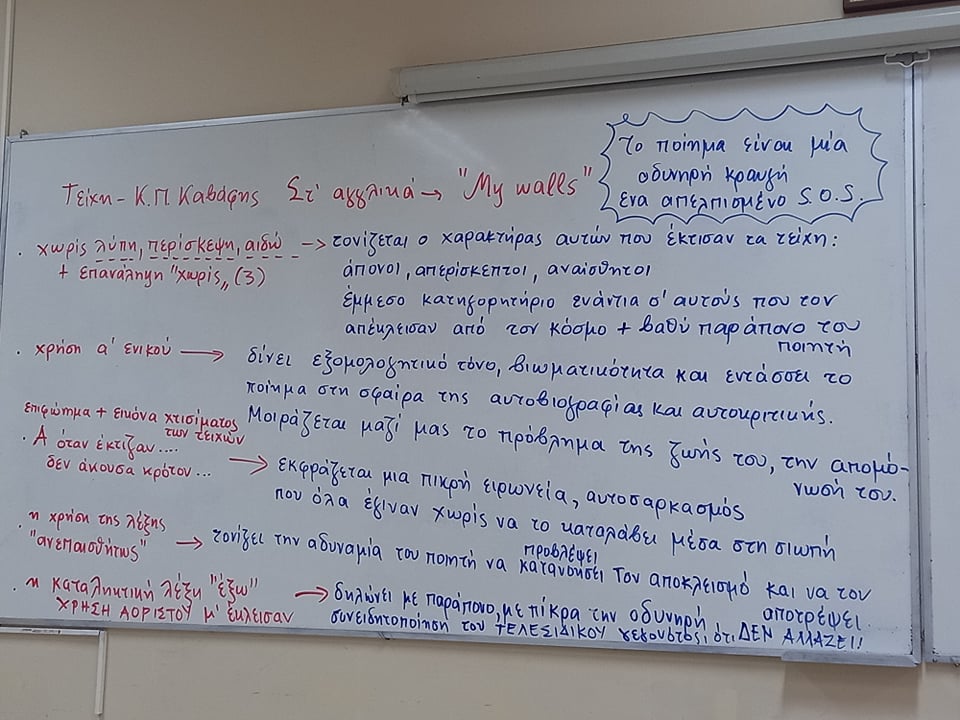 Το ποίημα είναι μία
οδυνηρή κραυγή
ένα απελπισμένο S.O.S.
Τείχη - Κ.Π Καβάφης Στ' αγγλικά → "My walls"
. χωρίς λύπη, περίσκεψη, αιδώ → τονίζεται ο χαρακτήρας αυτών που έκτισαν τα τείχη:
+ επανάληψη "χωρίς,, (3)
άπονοι, απερίσκεπτοι, αναίσθητοι
έμμεσο κατηγορητήριο ενάντια σ' αυτούς που τον
απέκλεισαν από τον κόσμο + βαθύ παράπονο του
ποιητή
. χρήση α' ενικού → δίνει εξομολογητικό τόνο, βιωματικότητα και εντάσσει το
ποίημα στη σφαίρα της αυτοβιογραφίας και αυτοκριτικής.
Μοιράζεται μαζί μας το πρόβλημα της ζωής του, την απομό-
νωσή του.
επιφώτημα + εικόνα χτισίματος
των τειχών
. Α όταν έκτιζαν....
δεν άκουσα κρότον...
→ εκφράζεται μια πικρή ειρωνεία, αυτοσαρκασμός
που όλα έγιναν χωρίς να το καταλάβει μέσα στη σιωπή
. η χρήση της λέξης
"ανεπαισθήτως" → τονίζει την αδυναμία του ποιητή να κατανοήσει τον αποκλεισμό και να τον
προβλέψει
αποτρέψει.
. η καταληκτική λέξη "έξω" → δηλώνει με παράπονο, με πίκρα την οδυνηρή
ΧΡΗΣΗ ΑΟΡΙΣΤΟΥ μ' έκλεισαν
συνειδητοποίηση του ΤΕΛΕΣΙΔΙΚΟΥ γεγονότος, ότι ΔΕΝ ΑΛΛΑΖΕΙ!